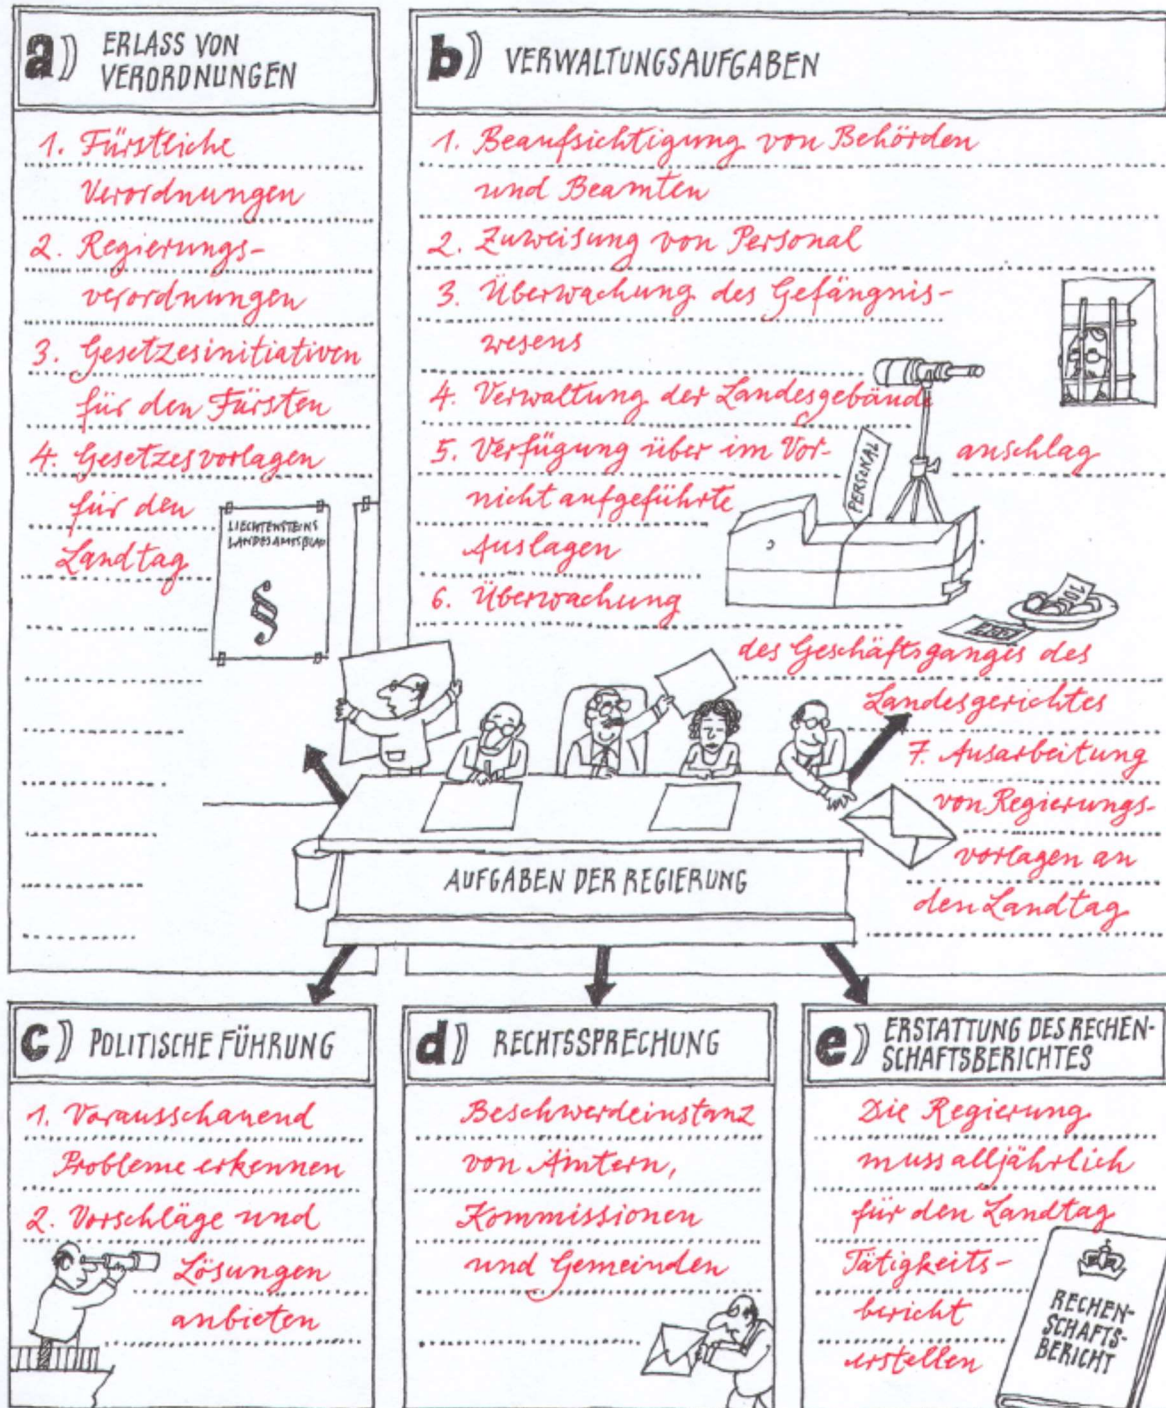 a) ERLASS VON
VERORDNUNGEN
1. Fürstliche
Verordnungen
2. Regierungs-
verordnungen
3. Gesetzesinitiativen
für den Fürsten
4. Gesetzesvorlagen
für den
Landtag
LIECHTENSTEINS
LANDESAMTSBLATT
§
b) VERWALTUNGSAUFGABEN
1. Beaufsichtigung von Behörden
und Beamten
2. Zuweisung von Personal
3. Überwachung des Gefängnis-
wesens
4. Verwaltung der Landesgebäude
5. Verfügung über im Vor- anschlag
nicht aufgeführte
Auslagen
6. Überwachung
des Geschäftsganges des
Landesgerichtes
7. Ausarbeitung
von Regierungs-
vorlagen an
den Landtag
PERSONAL
AUFGABEN DER REGIERUNG
c) POLITISCHE FÜHRUNG
1. Vorausschauend
Probleme erkennen
2. Vorschläge und
Lösungen
anbieten
d) RECHTSSPRECHUNG
Beschwerdeinstanz
von Ämtern,
Kommissionen
und Gemeinden
e) ERSTATTUNG DES RECHEN-
SCHAFTSBERICHTES
Die Regierung
muss alljährlich
für den Landtag
Tätigkeits-
bericht
erstellen
RECHEN-
SCHAFTS-
BERICHT